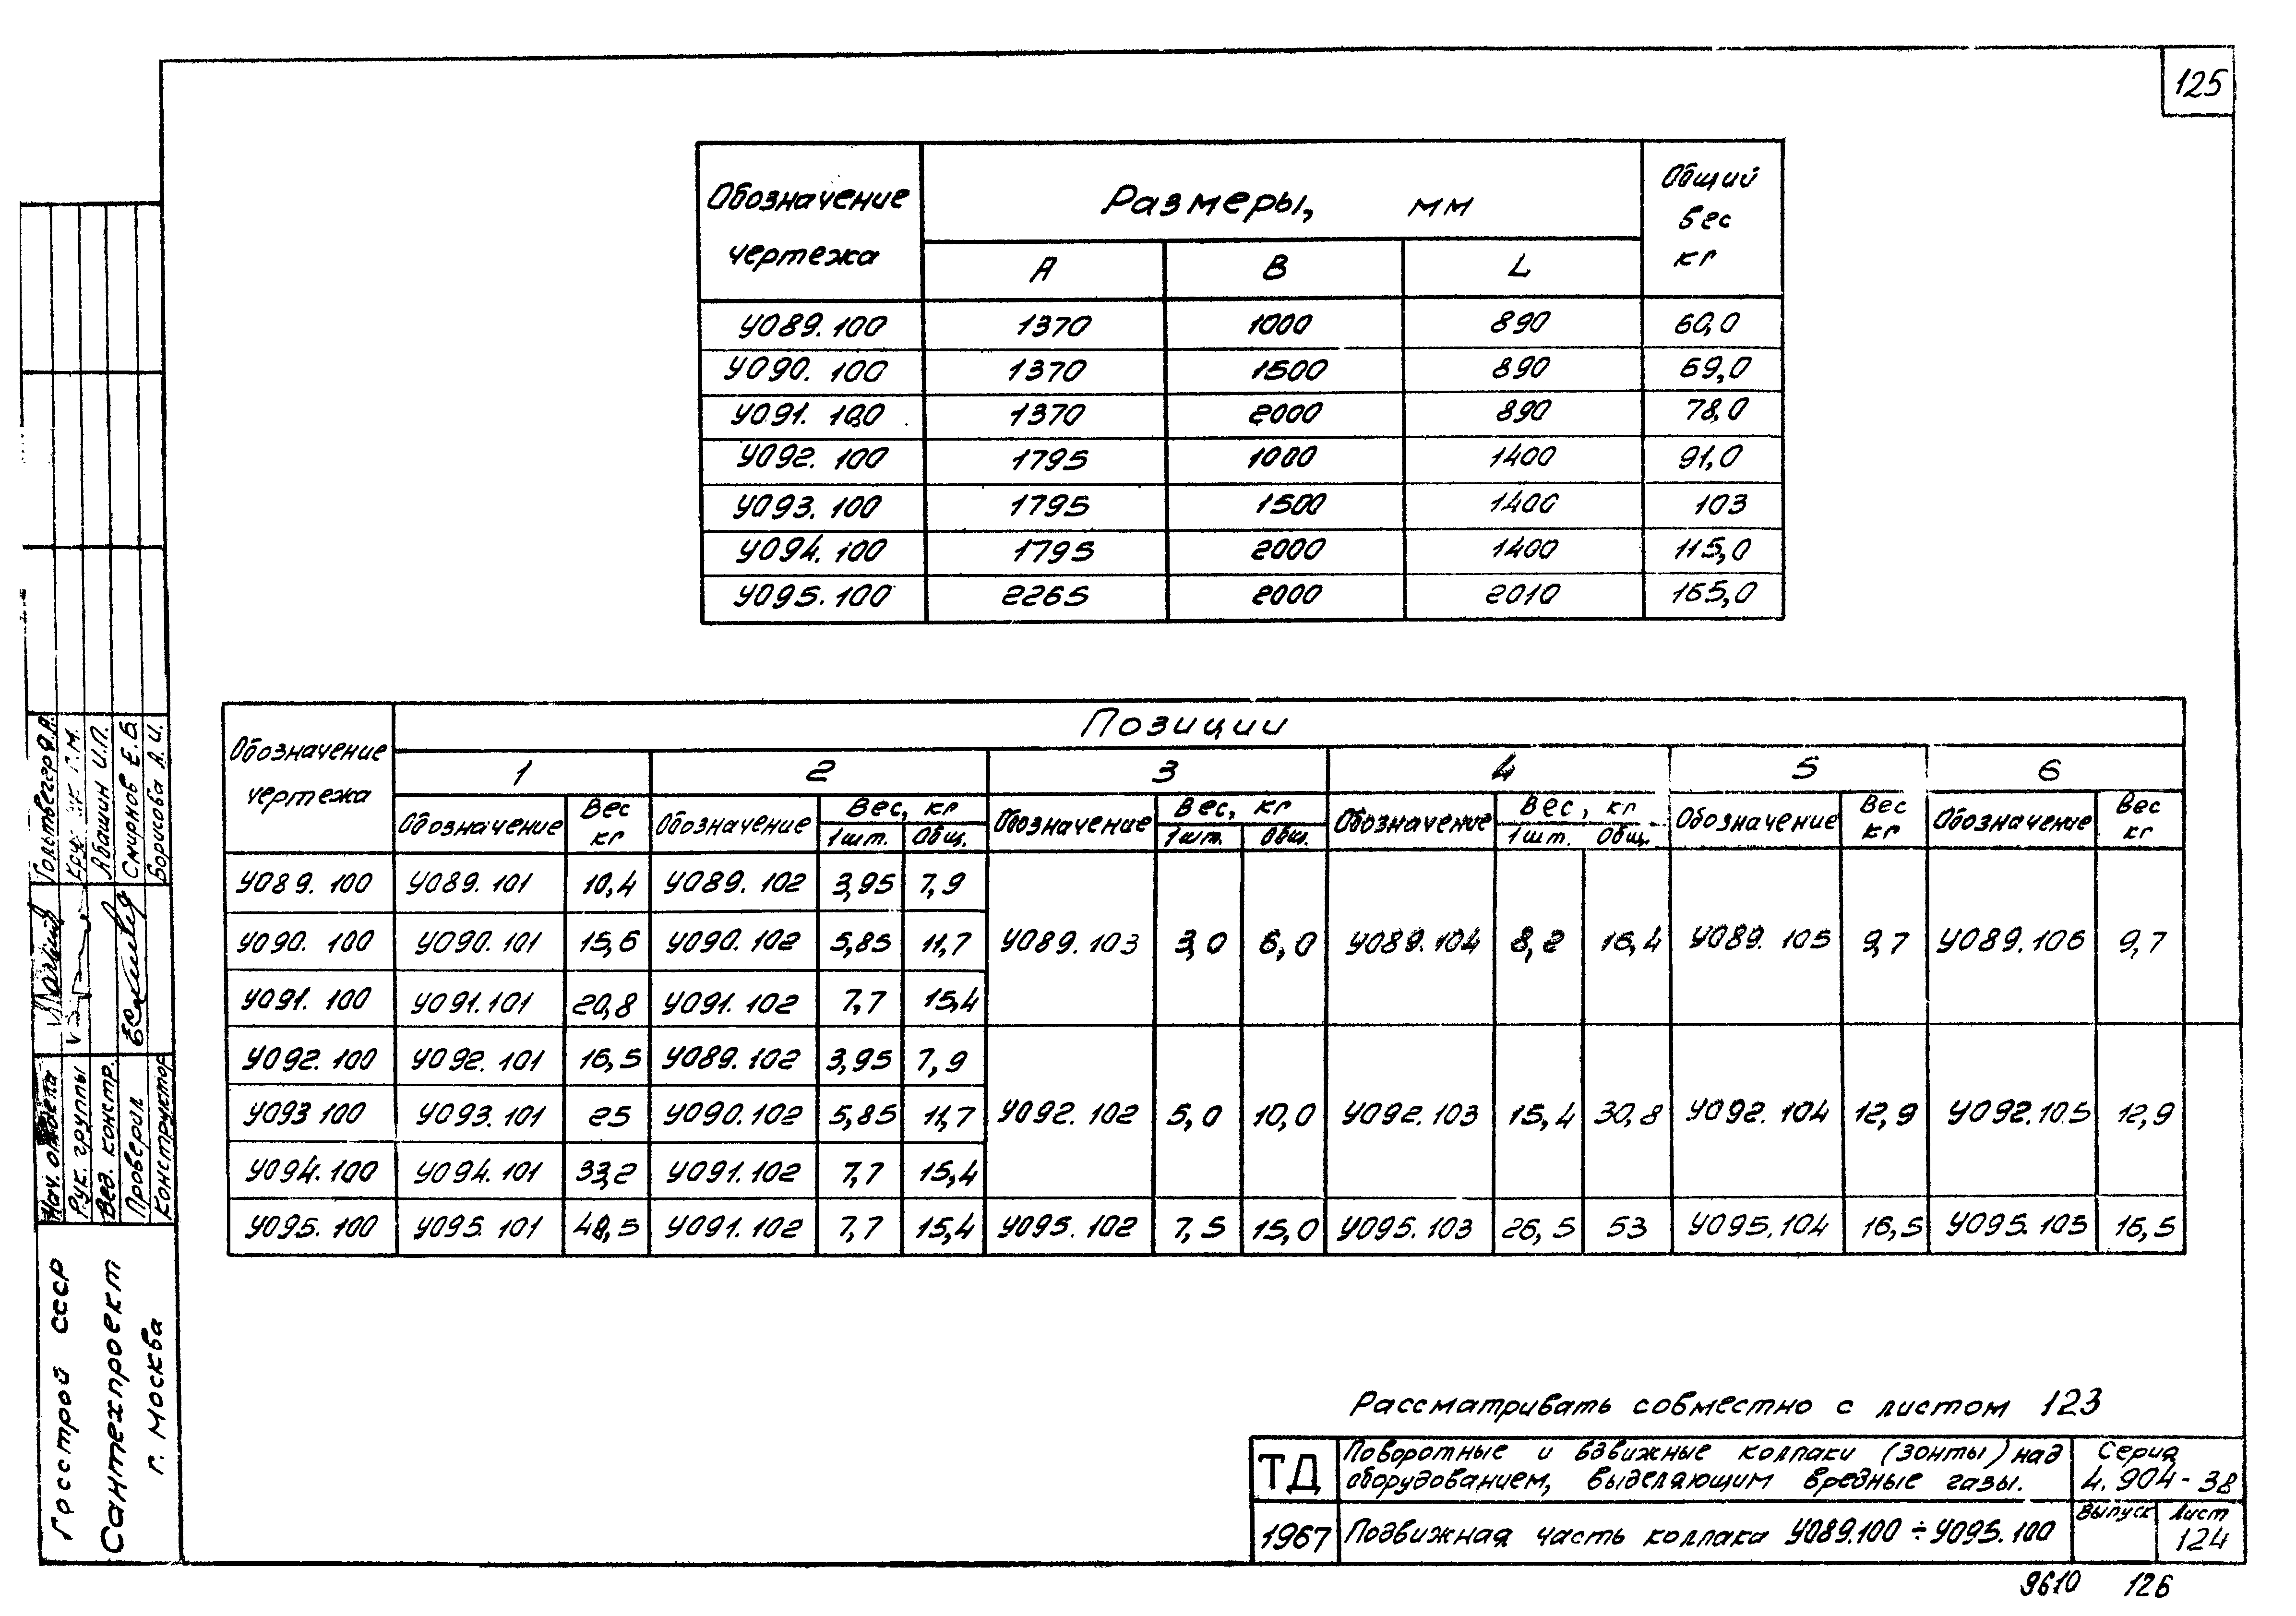 125
Обозначение чертежа | Размеры, мм | Общий вес кг
А | В | L
У089.100 | 1370 | 1000 | 890 | 60,0
У090.100 | 1370 | 1500 | 890 | 69,0
У091.100 | 1370 | 2000 | 890 | 78,0
У092.100 | 1795 | 1000 | 1400 | 91,0
У093.100 | 1795 | 1500 | 1400 | 103
У094.100 | 1795 | 2000 | 1400 | 115,0
У095.100 | 2265 | 2000 | 2010 | 165,0
Обозначение чертежа | Позиции
1 | 2 | 3 | 4 | 5 | 6
Обозначение | Вес кг | Обозначение | Вес, кг | Обозначение | Вес, кг | Обозначение | Вес, кг | Обозначение | Вес кг | Обозначение | Вес кг
1шт. | Общ. | 1шт. | Общ. | 1шт. | Общ.
У089.100 | У089.101 | 10,4 | У089.102 | 3,95 | 7,9
У090.100 | У090.101 | 15,6 | У090.102 | 5,85 | 11,7 | У089.103 | 3,0 | 6,0 | У089.104 | 8,2 | 16,4 | У089.105 | 9,7 | У089.106 | 9,7
У091.100 | У091.101 | 20,8 | У091.102 | 7,7 | 15,4
У092.100 | У092.101 | 16,5 | У089.102 | 3,95 | 7,9
У093 100 | У093.101 | 25 | У090.102 | 5,85 | 11,7 | У092.102 | 5,0 | 10,0 | У092.103 | 15,4 | 30,8 | У092.104 | 12,9 | У092.105 | 12,9
У094.100 | У094.101 | 33,2 | У091.102 | 7,7 | 15,4
У095.100 | У095.101 | 48,5 | У091.102 | 7,7 | 15,4 | У095.102 | 7,5 | 15,0 | У095.103 | 26,5 | 53 | У095.104 | 16,5 | У095.105 | 16,5
Рассматривать совместно с листом 123
ТД
Поворотные и вдвижные колпаки (зонты) над
оборудованием, выделяющим вредные газы.
Серия
4.904-38
1967
Подвижная часть колпака У089.100 ÷ У095.100
Выпуск
Лист
124
9610 126
Нач. отдела
Рук. группы | Г.М.
Вед. констр. | Абашин И.П.
Проверил | Смирнов Е.Б.
Конструктор | Борисова А.И.
Госстрой СССР
Сантехпроект
г. Москва